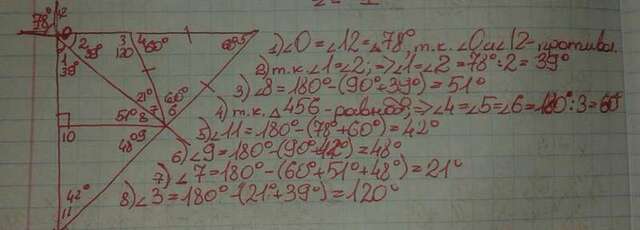 78° 12
0
1 2 3 4 60° 60° 5
39° 39° 120
21° 60°
51° 8 7 6
10 48° 9
42°
11
1) ∠0 = ∠12 = ∠78°, т.к. ∠0 и ∠12 - противопол.
2) т.к. ∠1 = ∠2; ⇒ ∠1 = ∠2 = 78° : 2 = 39°
3) ∠8 = 180° - (90° + 39°) = 51°
4) т.к. △456 - равнод; ⇒ ∠4 = ∠5 = ∠6 = 180° : 3 = 60°
5) ∠11 = 180° - (78° + 60°) = 42°
6) ∠9 = 180° - (90° 42°) = 48°
7) ∠7 = 180° - (60° + 51° + 48°) = 21°
8) ∠3 = 180° - (21° + 39°) = 120°